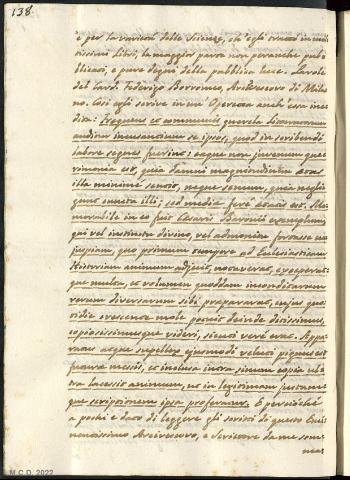 138.
è per la varietà delle Scienze, ch'egli trattò in mol-
tissimi Libri, la maggior parte non peranche pub-
blicati, e pure degni della pubblica luce. Parole
del Card. Federigo Borromeo, Arcivescovo di Mila-
no. Così egli scrive in un' Operetta anch'essa ine-
dita: Frequens et communis querela litteratorum
auditur incusantium se ipsos, quod in scribendi
labore segnes fuerint: eaque non juvenum que-
rimonia est, quia damni magnitudinem ætas
illa minime sentit, neque senum, quia neglig
gunt cuncta illi; sed mediæ fere ætatis est. Me-
morabile in eo fuit Cæsaris Baronii exemplum,
qui vel instinctu divino, vel admonitu fortasse cu-
juspiam, quo primum tempore ad Ecclesiasticam
Historiam animum adjecit, notaverat, excerpserat-
que multa, et volumen quoddam inconditarum
rerum diversarum sibi præpararat, cujus quo-
tidie crescente mole possit deinde ditissimus,
copiosissimusque videri, sicuti verè erat. Appa-
ratus atque supellex ejusmodi veluti pignus est
futuræ messis, et inclusa intra sinum copia no-
stra lacessit animum, ut in legitimam justam-
que scriptionem ipsa proferamus. E perciocchè
a pochi è dato di leggere gli scritti di questo Emi-
nentissimo Arcivescovo, e Scrittore da me som-
ma-
M.C.D. 2022